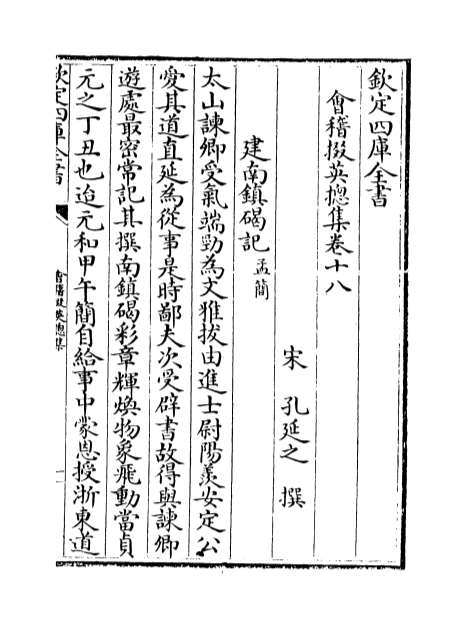 欽定四庫全書
會稽掇英總集卷十八
宋 孔延之 撰
建南鎮碣記 孟簡
太山諫卿受氣端勁為文雅拔由進士尉陽羨安定公
愛其道直延為從事是時鄙夫次受辟書故得與諫卿
遊處最密常記其撰南鎮碣彩章輝煥物象飛動當貞
元之丁丑也迨元和甲午簡自給事中蒙恩授浙東道
欽定四庫全書
會稽掇英總集
一